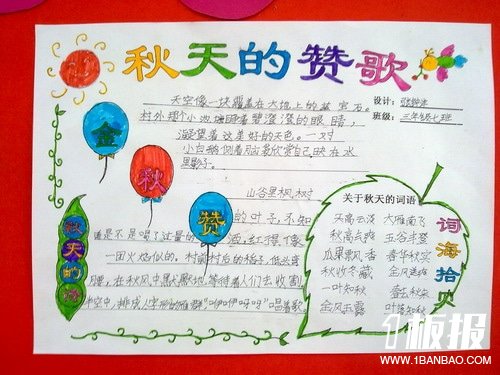 秋天的赞歌
天空像一块覆盖在大地上的蓝宝石。
村外那个小池塘睁着碧澄澄的眼睛,
凝望着这美好的天色。一对
小白鹅侧着脑袋欣赏自己映在水
里影子。
设计:
班级: 三年级七班
金
秋
赞
山谷里枫树
的叶子,不知
道是不是喝了过量的酒,红得像
一团火焰似的。村前村后的稻子,低云弯
腰,在秋风中默默地等待着人们去收割
半空中,排成人字形的雁群"咿咿呀呀"唱着歌。
秋天的
关于秋天的词语
天高云淡 大雁南飞
秋高气爽 五谷丰登
瓜果飘香 春华秋实
秋收冬藏 金风送爽
一叶知秋
金风玉露 叶落知秋
词海拾贝
1板报
WWW.1BANBAO.COM